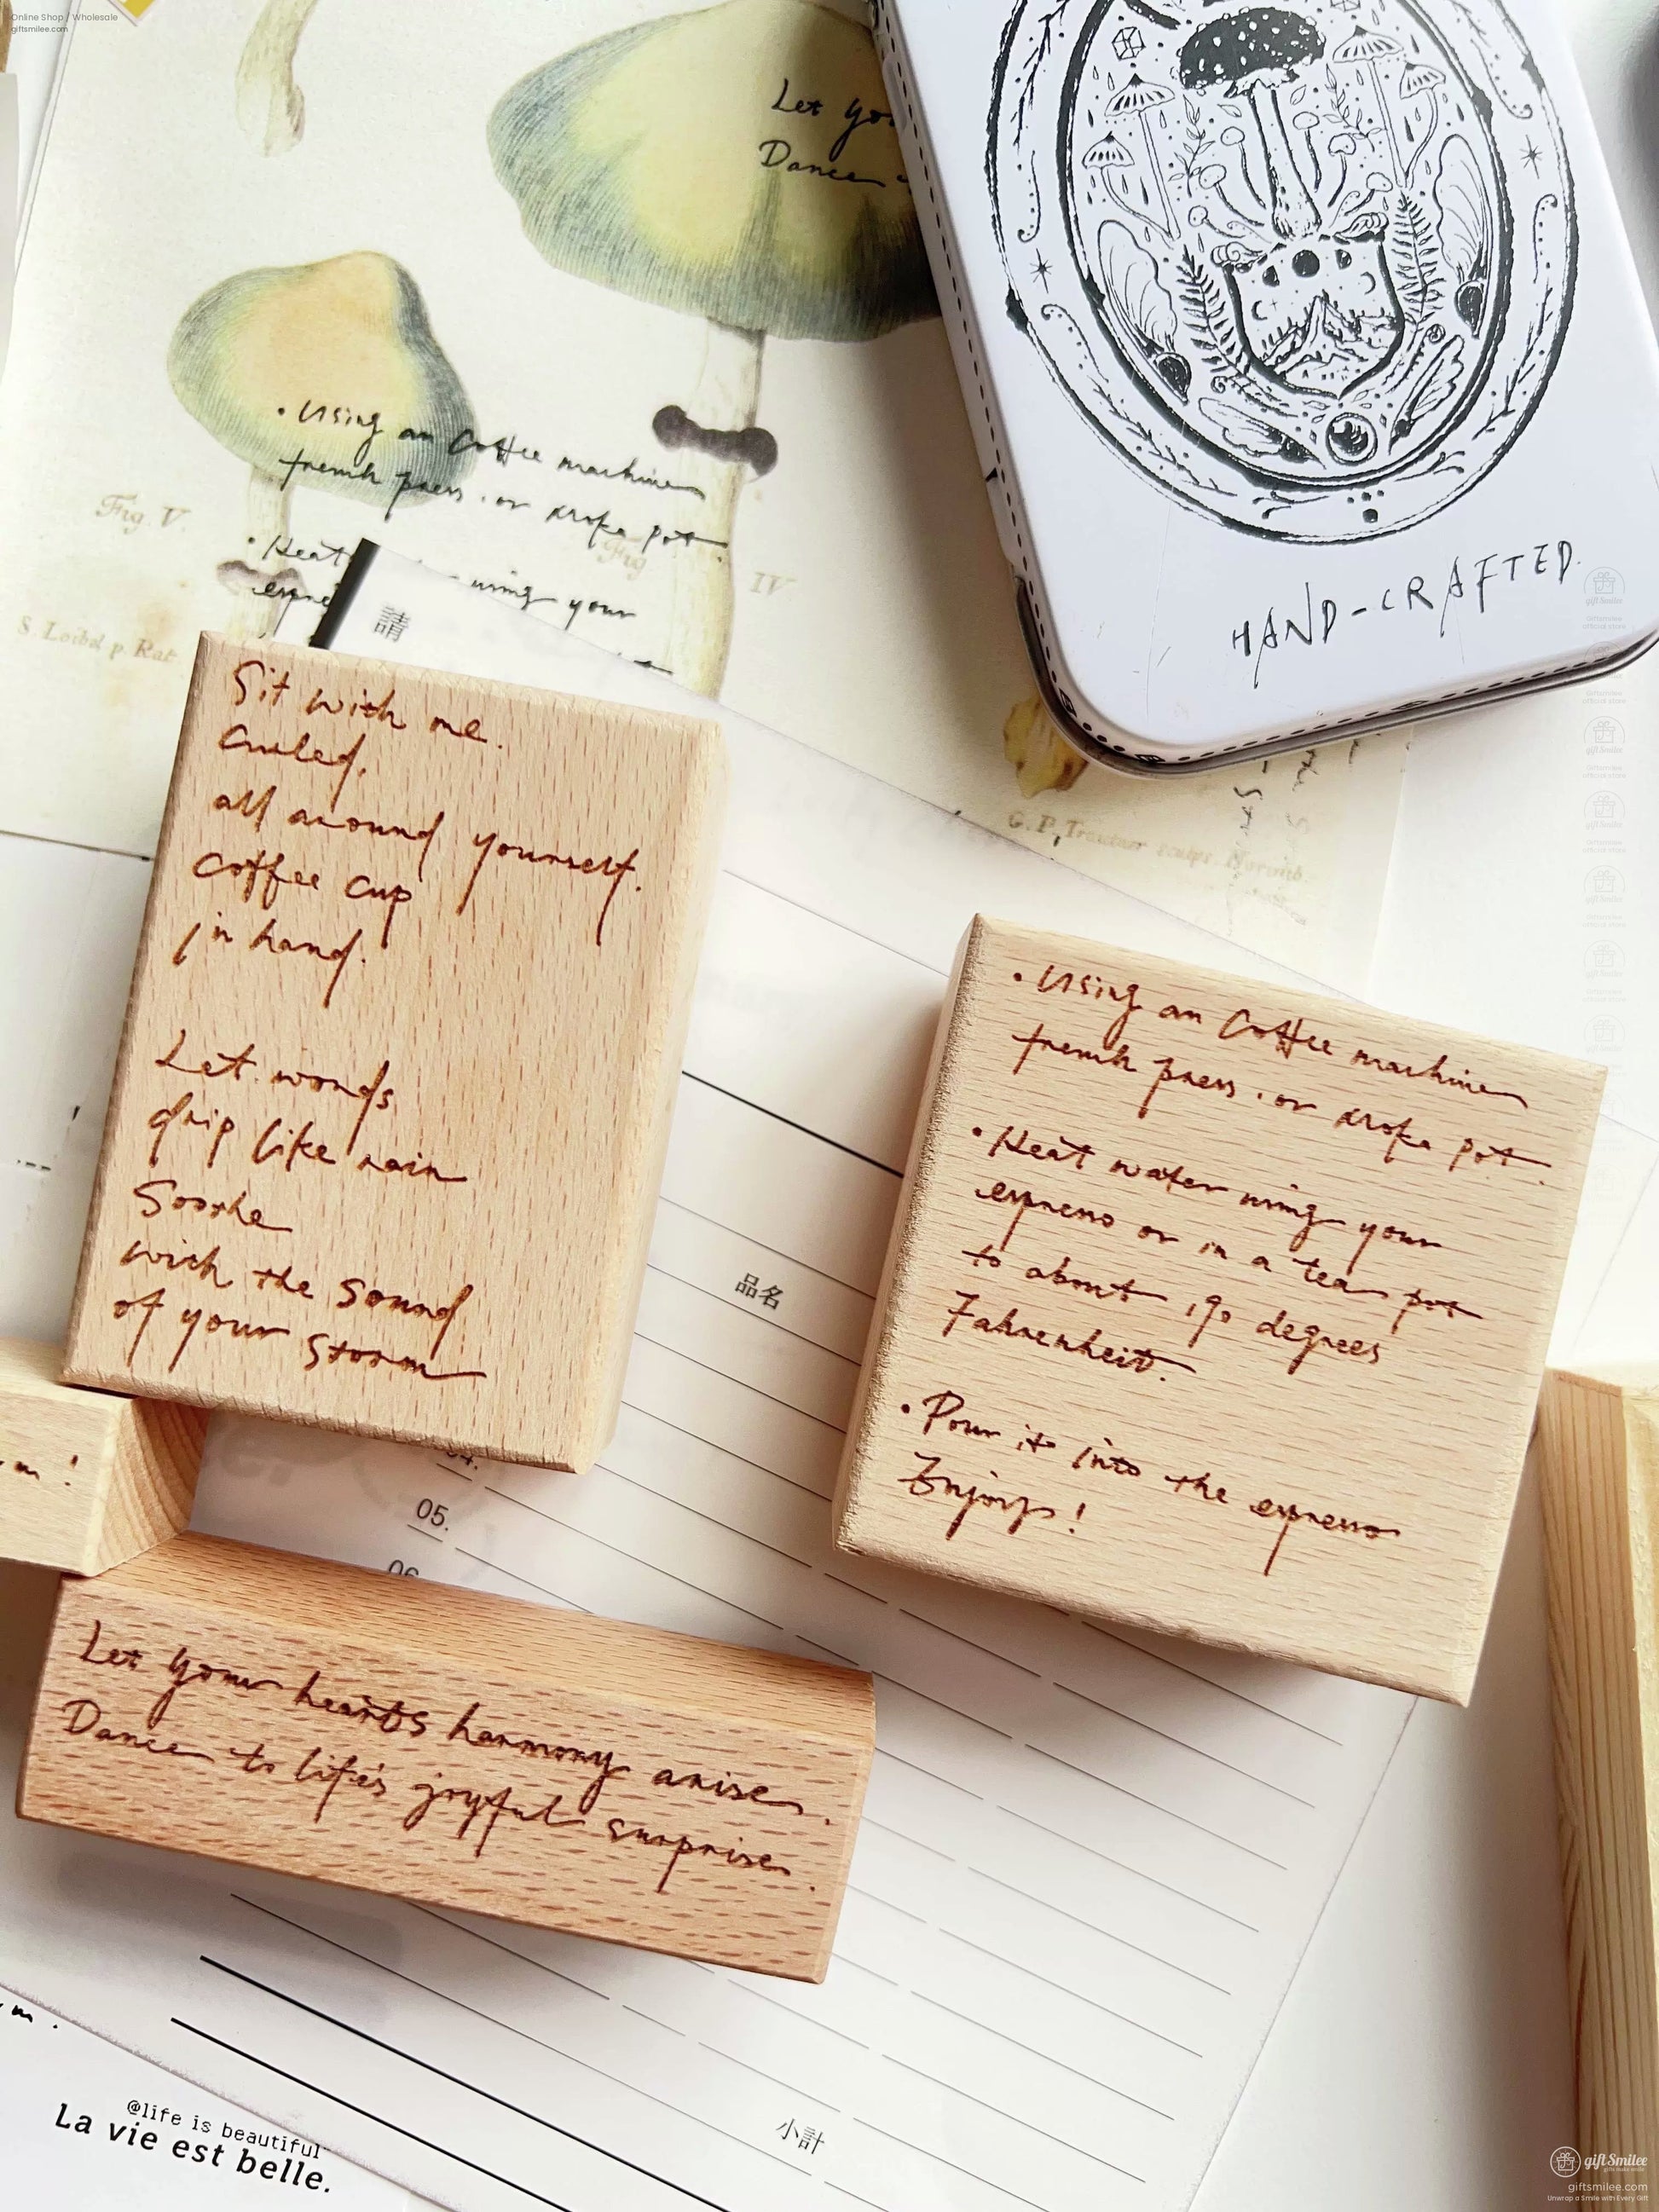 Online Shop / Wholesale
giftsmilee.com
Let you
Dance
• Using an Coffee machine
french press. or moka pot.
• Heat
using your
Fig. V.
Fig
IV
S. Loibel p. Rat
請
HAND-CRAFTED.
G. P. Trautner sculps. Norimb.
Sit with me.
Curled.
all around yourself.
Coffee cup
in hand.
Let words
drip like rain
Soothe
with the sound
of your storm
• Using an Coffee machine
french press. or moka pot.
• Heat water using your
espresso or in a tea pot
to about 190 degrees
Fahrenheit.
• Pour it into the espresso
Enjoys!
品名
04.
05.
06
m!
Let your hearts harmony arise.
Dance to life's joyful surprise.
小計
@life is beautiful
La vie est belle.
gift Smilee
giftsmilee.com
Unwrap a Smile with Every Gift